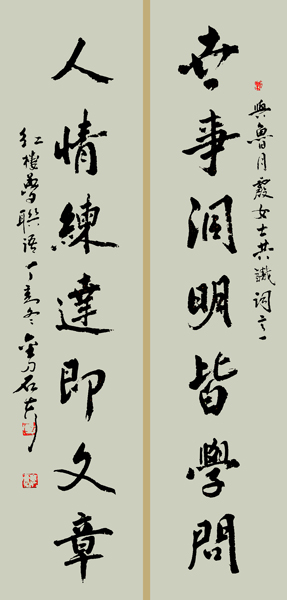 與魯月霞女士共識詞之一
世事洞明皆學問
人情練達即文章
紅樓夢聯語丁亥冬金刀石